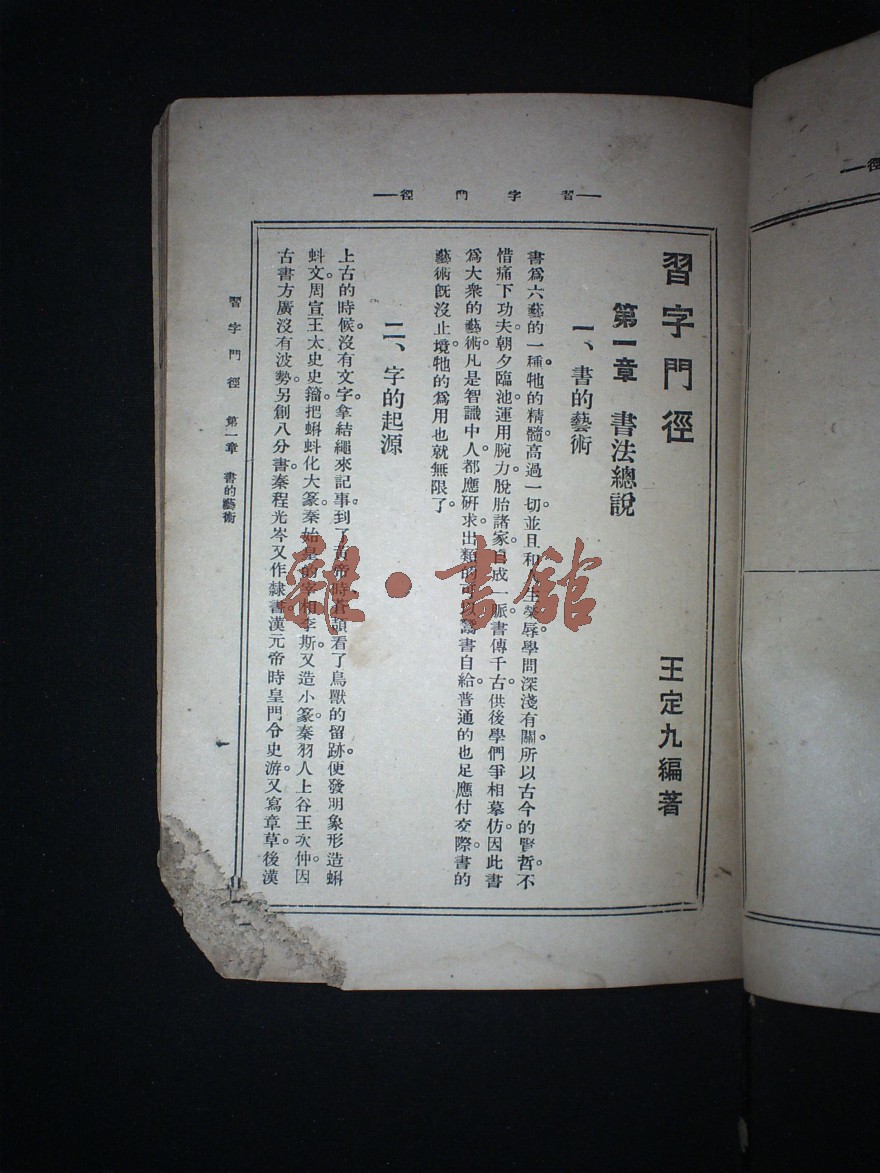 徑門字習
習字門徑
王定九編著
第一章 書法總說
一、書的藝術
書爲六藝的一種。牠的精髓高過一切並且和人生榮辱學問深淺有關。所以古今的賢哲。不
惜痛下功夫。朝夕臨池。運用腕力。脫胎諸家。自成一脈。書傳千古。供後學們爭相摹仿。因此書
爲大衆的藝術。凡是智識中人。都應研求。出類的可以鬻書自給。普通的也足應付交際。書的
藝術旣沒止境。牠的爲用也就無限了。
二、字的起源
上古的時候。沒有文字。拿結繩來記事。到了黃帝時。蒼頡看了鳥獸的留跡。便發明象形造蝌
蚪文。周宣王太史史籀。把蝌蚪化大篆。秦始皇的宰相李斯。又造小篆。秦羽人上谷王次仲。因
古書方廣。沒有波勢。另創八分書。秦程光岑又作隸書。漢元帝時皇門令史游。又寫章草。後漢
習字門徑 第一章 書的藝術
一
雜·書館
徑